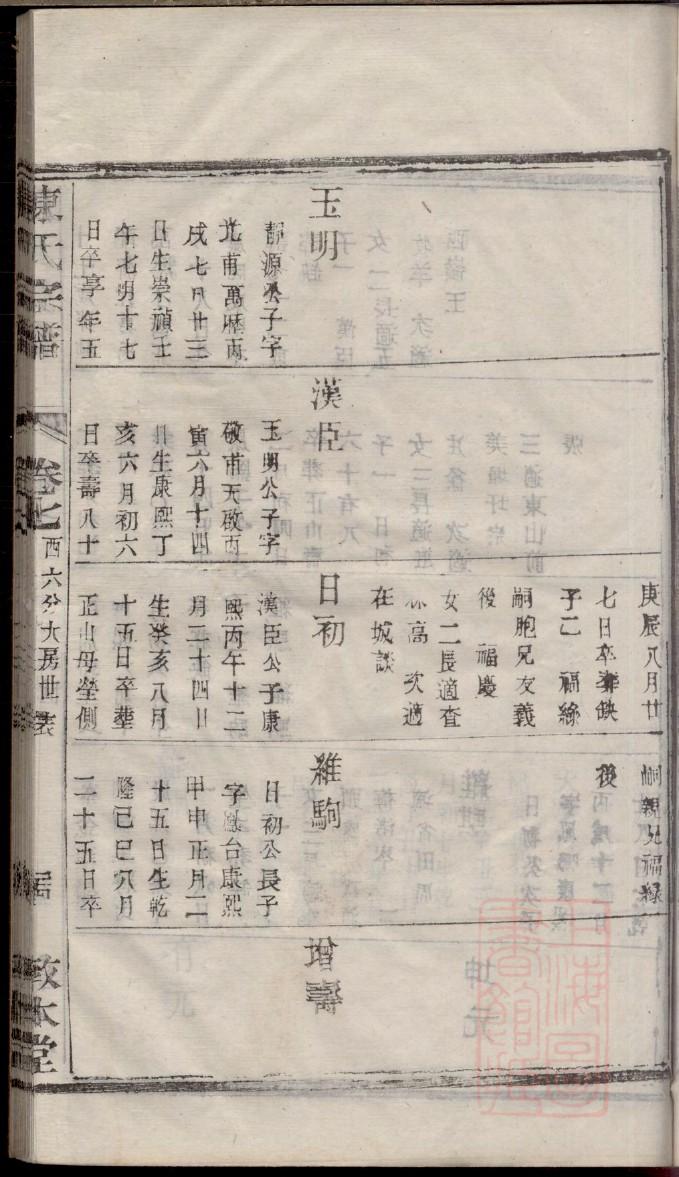 玉明
靜源公子字
光甫萬歷丙
戌七月廿三
日生崇禎壬
午七明十七
日卒享年五
漢臣
玉明公子字
敬甫天啟丙
寅六月十四
日生康熙丁
亥六月初六
日卒壽八十
庚辰八月廿
七日卒葬缺
子乙 福綠
嗣胞兄友義
後 福慶
女二長適查
林高 次適
在城談
日初
漢臣公子康
熙丙午十二
月二十四日
生癸亥八月
十五日卒葬
正山母塋側
嗣親兄福綠
後
維駒
日初公長子
字鳳台康熙
甲申正月二
十五日生乾
隆己巳六月
二十五日卒
增壽
陳氏宗譜
卷七 西六分大房世表
致本堂